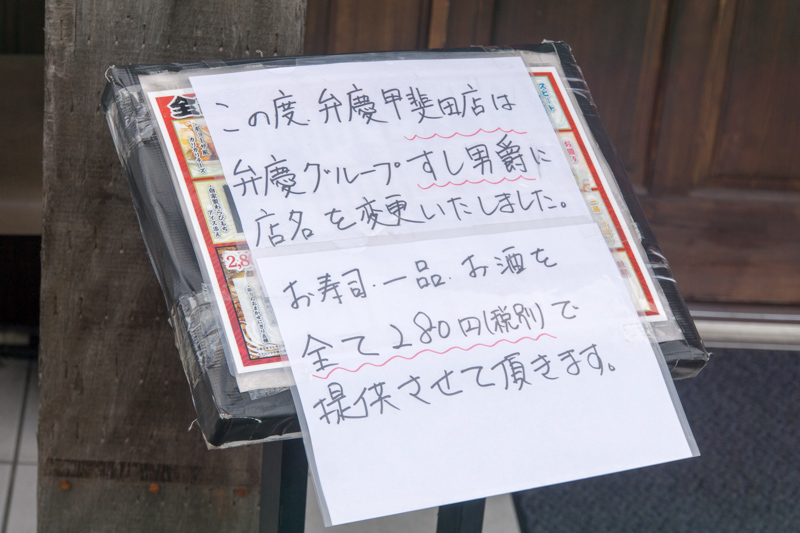 この度、弁慶甲斐田店は
弁慶グループすし男爵に
店名を変更いたしました。
お寿司・一品・お酒を
全て280円(税別)で
提供させて頂きます。
全
2,8